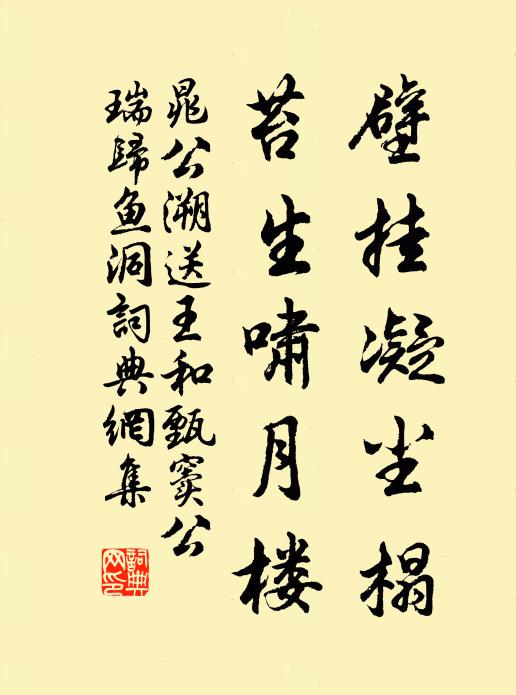 壁挂凝尘榻
苔生啸月楼
晁公溯送王和甄窦公
瑞歸鱼洞詞典網集
詞典网印